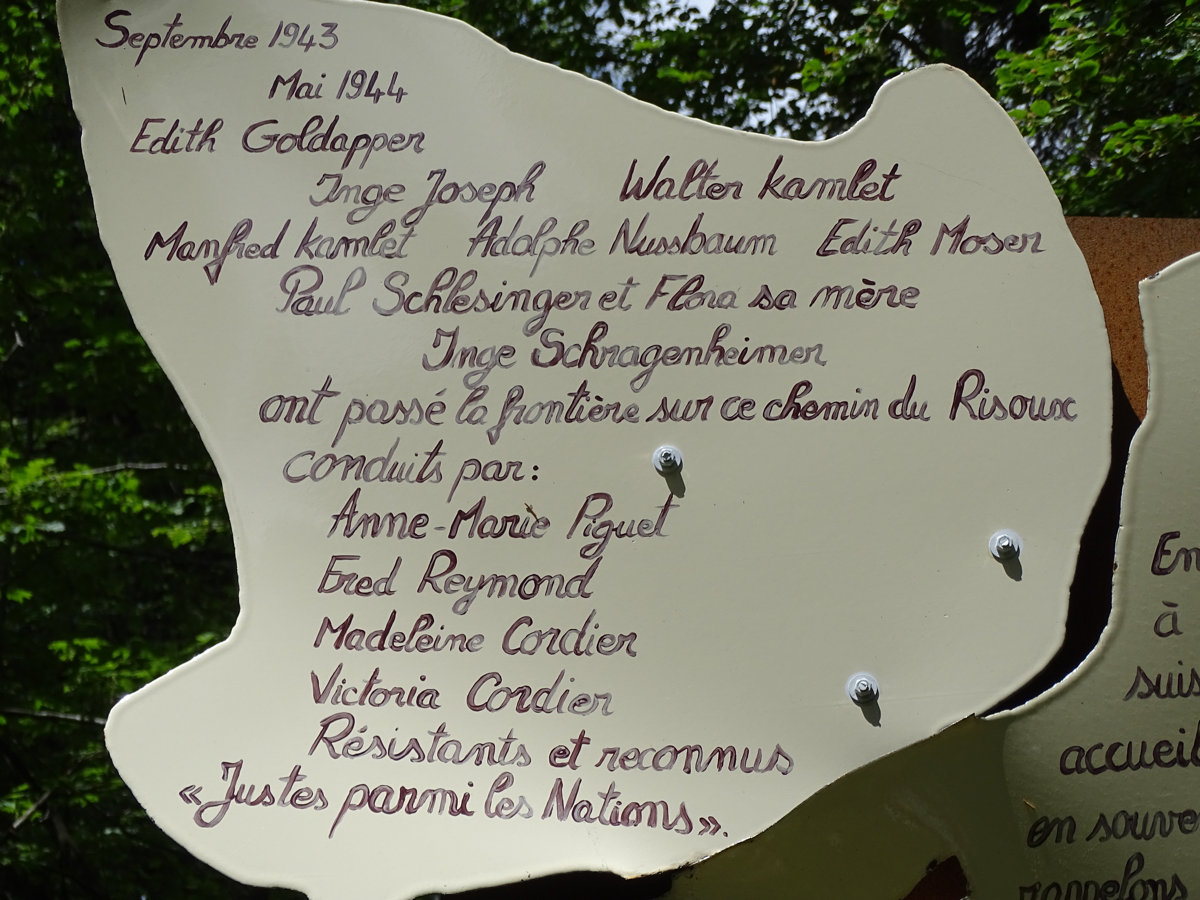 Septembre 1943
Mai 1944
Edith Goldapper
Inge Joseph Walter Kamlet
Manfred Kamlet Adolphe Nussbaum Edith Moser
Paul Schlesinger et Flora sa mère
Inge Schragenheimer
ont passé la frontière sur ce chemin du Risoux
conduits par:
Anne-Marie Piguet
Fred Reymond
Madeleine Cordier
Victoria Cordier
Résistants et reconnus
«Justes parmi les Nations».
En
à
suis
accueil
en souve
rappelons